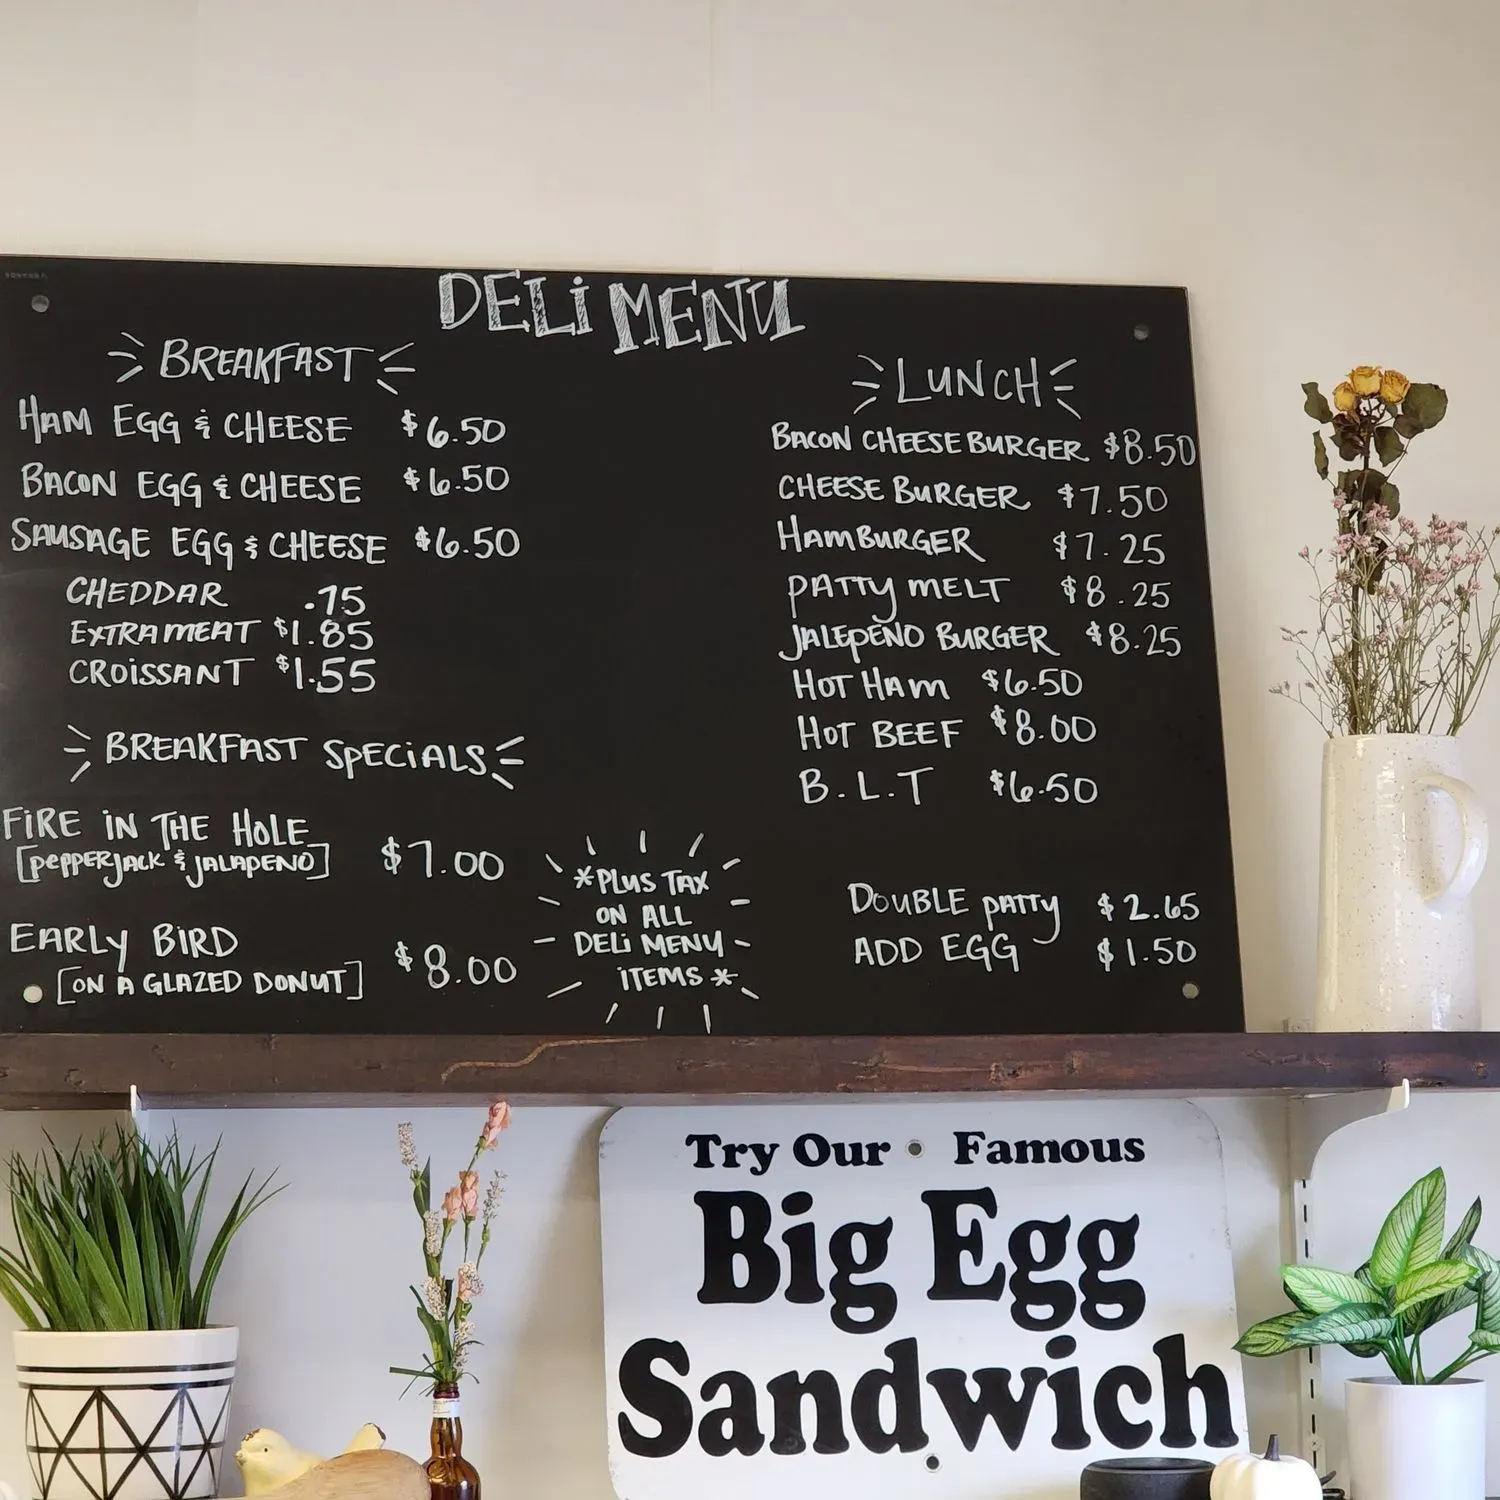 DELi MENU
BREAKFAST
HAM EGG & CHEESE $6.50
BACON EGG & CHEESE $6.50
SAUSAGE EGG & CHEESE $6.50
CHEDDAR .75
EXTRA MEAT $1.85
CROiSSANT $1.55
BREAKFAST SPECiALS
FiRE iN THE HOLE
[PEPPERJACK & JALAPENO] $7.00
EARLY BIRD
[ON A GLAZED DONUT] $8.00
*PLUS TAX
ON ALL
DELi MENU
iTEMS*
LUNCH
BACON CHEESE BURGER $8.50
CHEESE BURGER $7.50
HAMBURGER $7.25
PATTY MELT $8.25
JALEPEÑO BURGER $8.25
HOT HAM $6.50
HOT BEEF $8.00
B.L.T $6.50
DOUBLE PATTY $2.65
ADD EGG $1.50
Try Our Famous
Big Egg
Sandwich